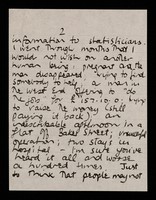 2
information to statisticians
I went through months that I
would not wish on another
human being: pregnant and the
man disappeared; trying to find
somebody to help, a man in
the West End offering to do
the job for £157.10.0; trying
to raise the money (still
paying it back); an
unspeakable afternoon in a
flat off Baker Street; unsuccessful
operation; two stays in
hospital. I'm sure you've
heard it all and worse
a hundred times. Just
to think that people may not